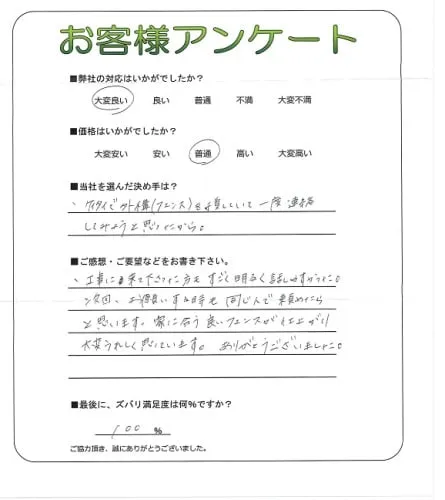 お客様アンケート
■弊社の対応はいかがでしたか?
大変良い 良い 普通 不満 大変不満
■価格はいかがでしたか?
大変安い 安い 普通 高い 大変高い
■当社を選んだ決め手は?
、ケイタイで外構(フェンス)を検索していて一度連絡
してみようと思ったから。
■ご感想・ご要望などをお書き下さい。
、工事に来て下さった方もすごく明るく話しやすかったです。
次回、お願いする時も同じ人で頼めたら
と思います。家に合う良いフェンスが仕上がり
大変うれしく思っています。ありがとうございました。
■最後に、ズバリ満足度は何%ですか?
100 %
ご協力頂き、誠にありがとうございました。